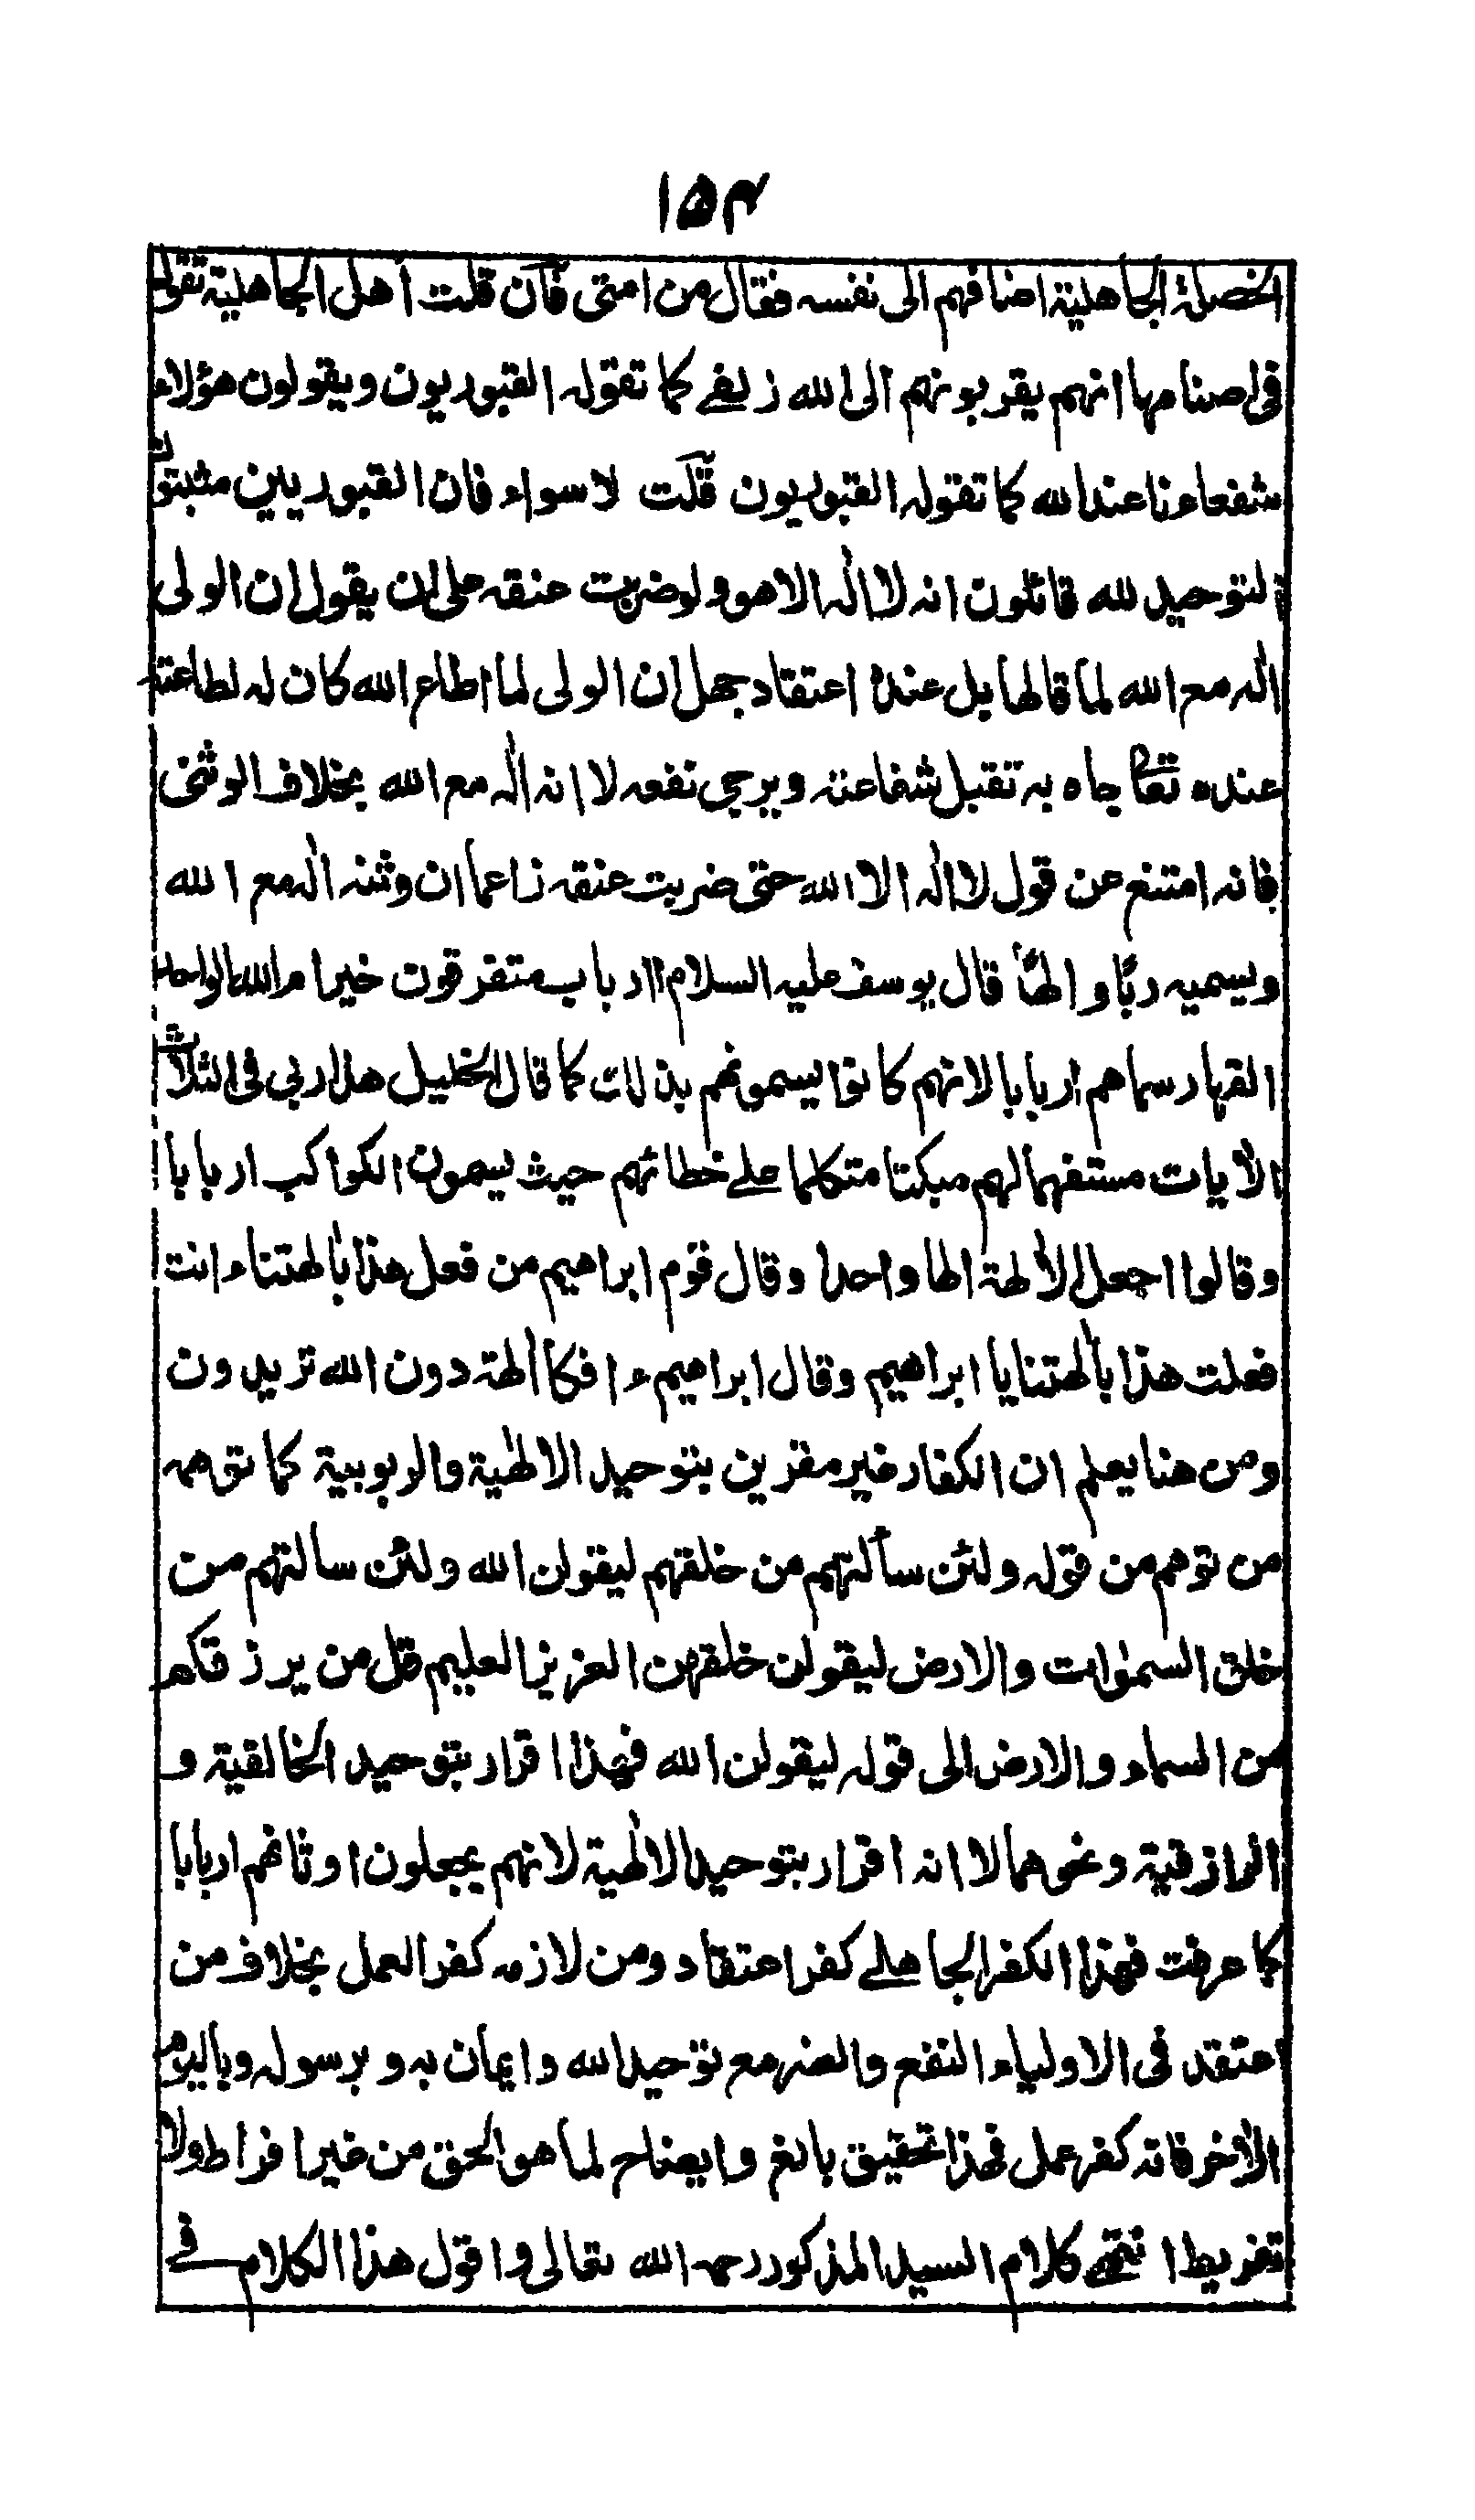 ١٥٤
الخصلة الجاهلية اضافهم الى نفسه فقال من امتى فان قلت اهل الجاهلية تقول
فى اصنامها انهم يقربونهم الى الله زلفے كما تقوله القبوريون ويقولون هؤلاء
شفعاءنا عند الله كما تقوله القبوريون قلت لا سواء فان القبوريين مثبتون
التوحيد لله قائلون انه لا اله الا هو ولو ضربت عنقه على ان يقول ان الولى
اله مع الله لما قالها بل عنده اعتقاد جهل ان الولى لما اطاع الله كان له لطاعته
عنده تعالى جاه به تقبل شفاعته ويرجى نفعه لا انه اله مع الله بخلاف الوثنى
فانه امتنع عن قول لا اله الا الله حتى ضربت عنقه زاعما ان وثنه اله مع الله
ويسميه ربًا والهًا قال يوسف عليه السلام اارباب متفرقون خير ام الله الواحد
القهار سماهم اربابا لانهم كانوا يسمونهم بذلك كما قال الخليل هذا ربى فى الثلاث
الآيات مستفهما لهم مبكتا متكلما علے خطائهم حيث يسمون الكواكب اربابا
وقالوا اجعل الآلهة الها واحدا وقال قوم ابراهيم من فعل هذا بآلهتنا ءانت
فعلت هذا بآلهتنا يا ابراهيم وقال ابراهيم ءافكا آلهة دون الله تريدون
ومن هنا يعلم ان الكفار غير مقرين بتوحيد الالهية والربوبية كما توهمه
من توهم من قوله ولئن سألتهم من خلقهم ليقولن الله ولئن سالتهم من
خلق السموات والارض ليقولن خلقهن العزيز العليم قل من يرزقكم
من السماء والارض الى قوله ليقولن الله فهذا اقرار بتوحيد الخالقية و
الرازقية ونحوهما لا انه اقرار بتوحيد الالهية لانهم يجعلون اوثانهم اربابا
كما عرفت فهذا الكفر الجاهلے كفر اعتقاد ومن لازمه كفر العمل بخلاف من
اعتقد فى الاولياء النفع والضر مع توحيد الله وايمان به وبرسوله وباليوم
الآخر فانه كفر عمل فهذا تحقيق بالغ وايضاح لما هو الحق من غير افراط ولا
تفريط انتهے كلام السيد المذكور رحمه الله تعالى واقول هذا الكلام فے